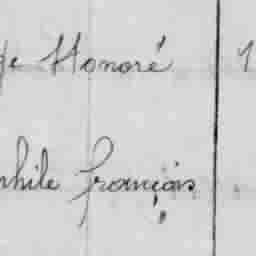 Honoré 1
phile françois